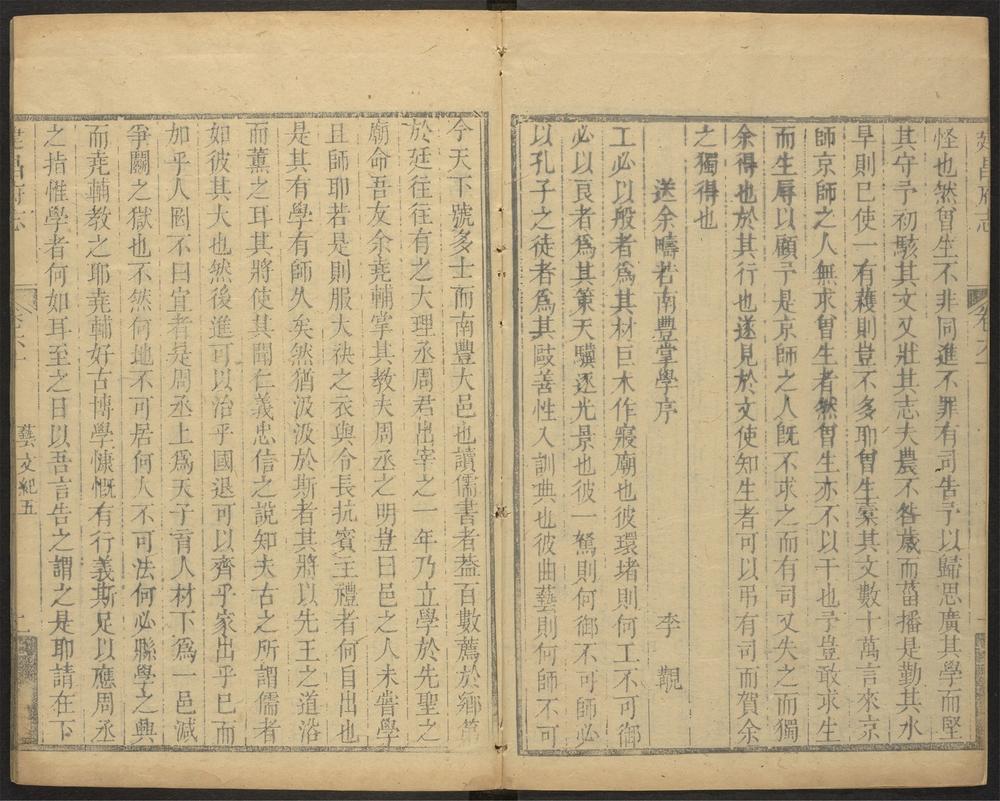 建昌府志
卷之
怪也然曾生不非同進不罪有司告予以歸思廣其學而堅
其守予初駭其文又壯其志夫農不咎歲而菑播是勤其水
旱則已使一有穫則豈不多耶曾生橐其文數十萬言來京
師京師之人無求曾生者然曾生亦不以干也予豈敢求生
而生辱以顧予是京師之人旣不求之而有司又失之而獨
余得也於其行也遂見於文使知生者可以弔有司而賀余
之獨得也
送余疇若南豐掌學序
李覯
工必以般者爲其材巨木作寢廟也彼環堵則何工不可御
必以良者爲其策天驥逐光景也彼一駑則何御不可師必
以孔子之徒者爲其敺善性入訓典也彼曲藝則何師不可
今天下號多士而南豐大邑也讀儒書者葢百數薦於鄉第
於廷往往有之大理丞周君出宰之一年乃立學於先聖之
廟命吾友余堯輔掌其教夫周丞之明豈曰邑之人未嘗學
且師耶若是則服大袂之衣與令長抗賓主禮者何自出也
是其有學有師久矣然猶汲汲於斯者其將以先王之道浴
而薰之耳其將使其聞仁義忠信之說知夫古之所謂儒者
如彼其大也然後進可以治乎國退可以齊乎家出乎已而
加乎人罔不曰宜者是周丞上爲天子育人材下爲一邑減
爭鬬之獄也不然何地不可居何人不可法何必縣學之興
而堯輔教之耶堯輔好古博學慷慨有行義斯足以應周丞
之指惟學者何如耳至之日以吾言告之謂之是耶請在下
建昌府志
藝文紀五